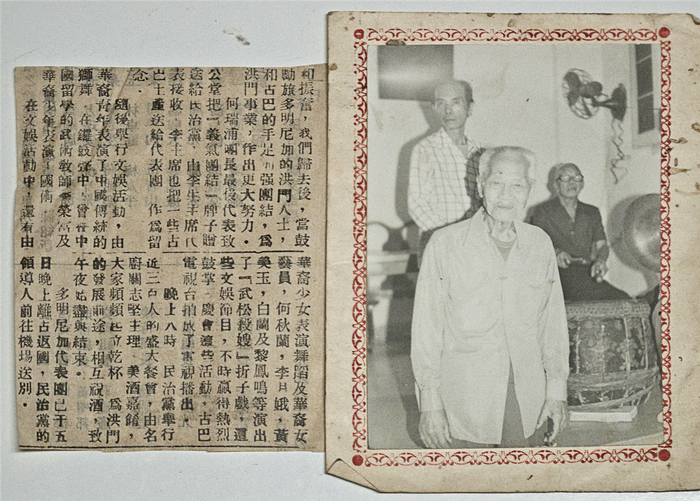 和振奮，我們歸去後，當鼓
勵旅多明尼加的洪門人士，
和古巴的手足加强團結，為
洪門事業，作出更大努力。
何瑞浦團長最後代表致
公堂把「義氣團結」牌子贈
送給民治黨，由李生主席代
表接收，李主席也把一些古
巴土產送給代表團，作為留
念。
隨後舉行文娛活動，由
華裔青年表演了中國傳統的
獅舞，在鑼鼓聲中，曾在中
國留學的武術教師 榮富及
華裔少年表演了國術。
在文娛活動中，還有由
華裔少女表演舞蹈及華裔女
藝員，何秋蘭，李月娥，黃
美玉，白蘭及黎鳳鳴等演出
了「武松殺嫂」折子戲，這
些文娛節目，不時贏得熱烈
鼓掌。慶會這些活動，古巴
電視台拍成了電視播出。
晚上八時，民治黨舉行
近三百人的盛大餐會，由名
廚關志堅主理，美酒嘉餚，
大家頻頻起立乾杯，為洪門
的發展前途，相互祝酒，致
午夜始盡興結束。
多明尼加代表團已于五
日晚上離古返國，民治黨的
領導人前往機場送別。